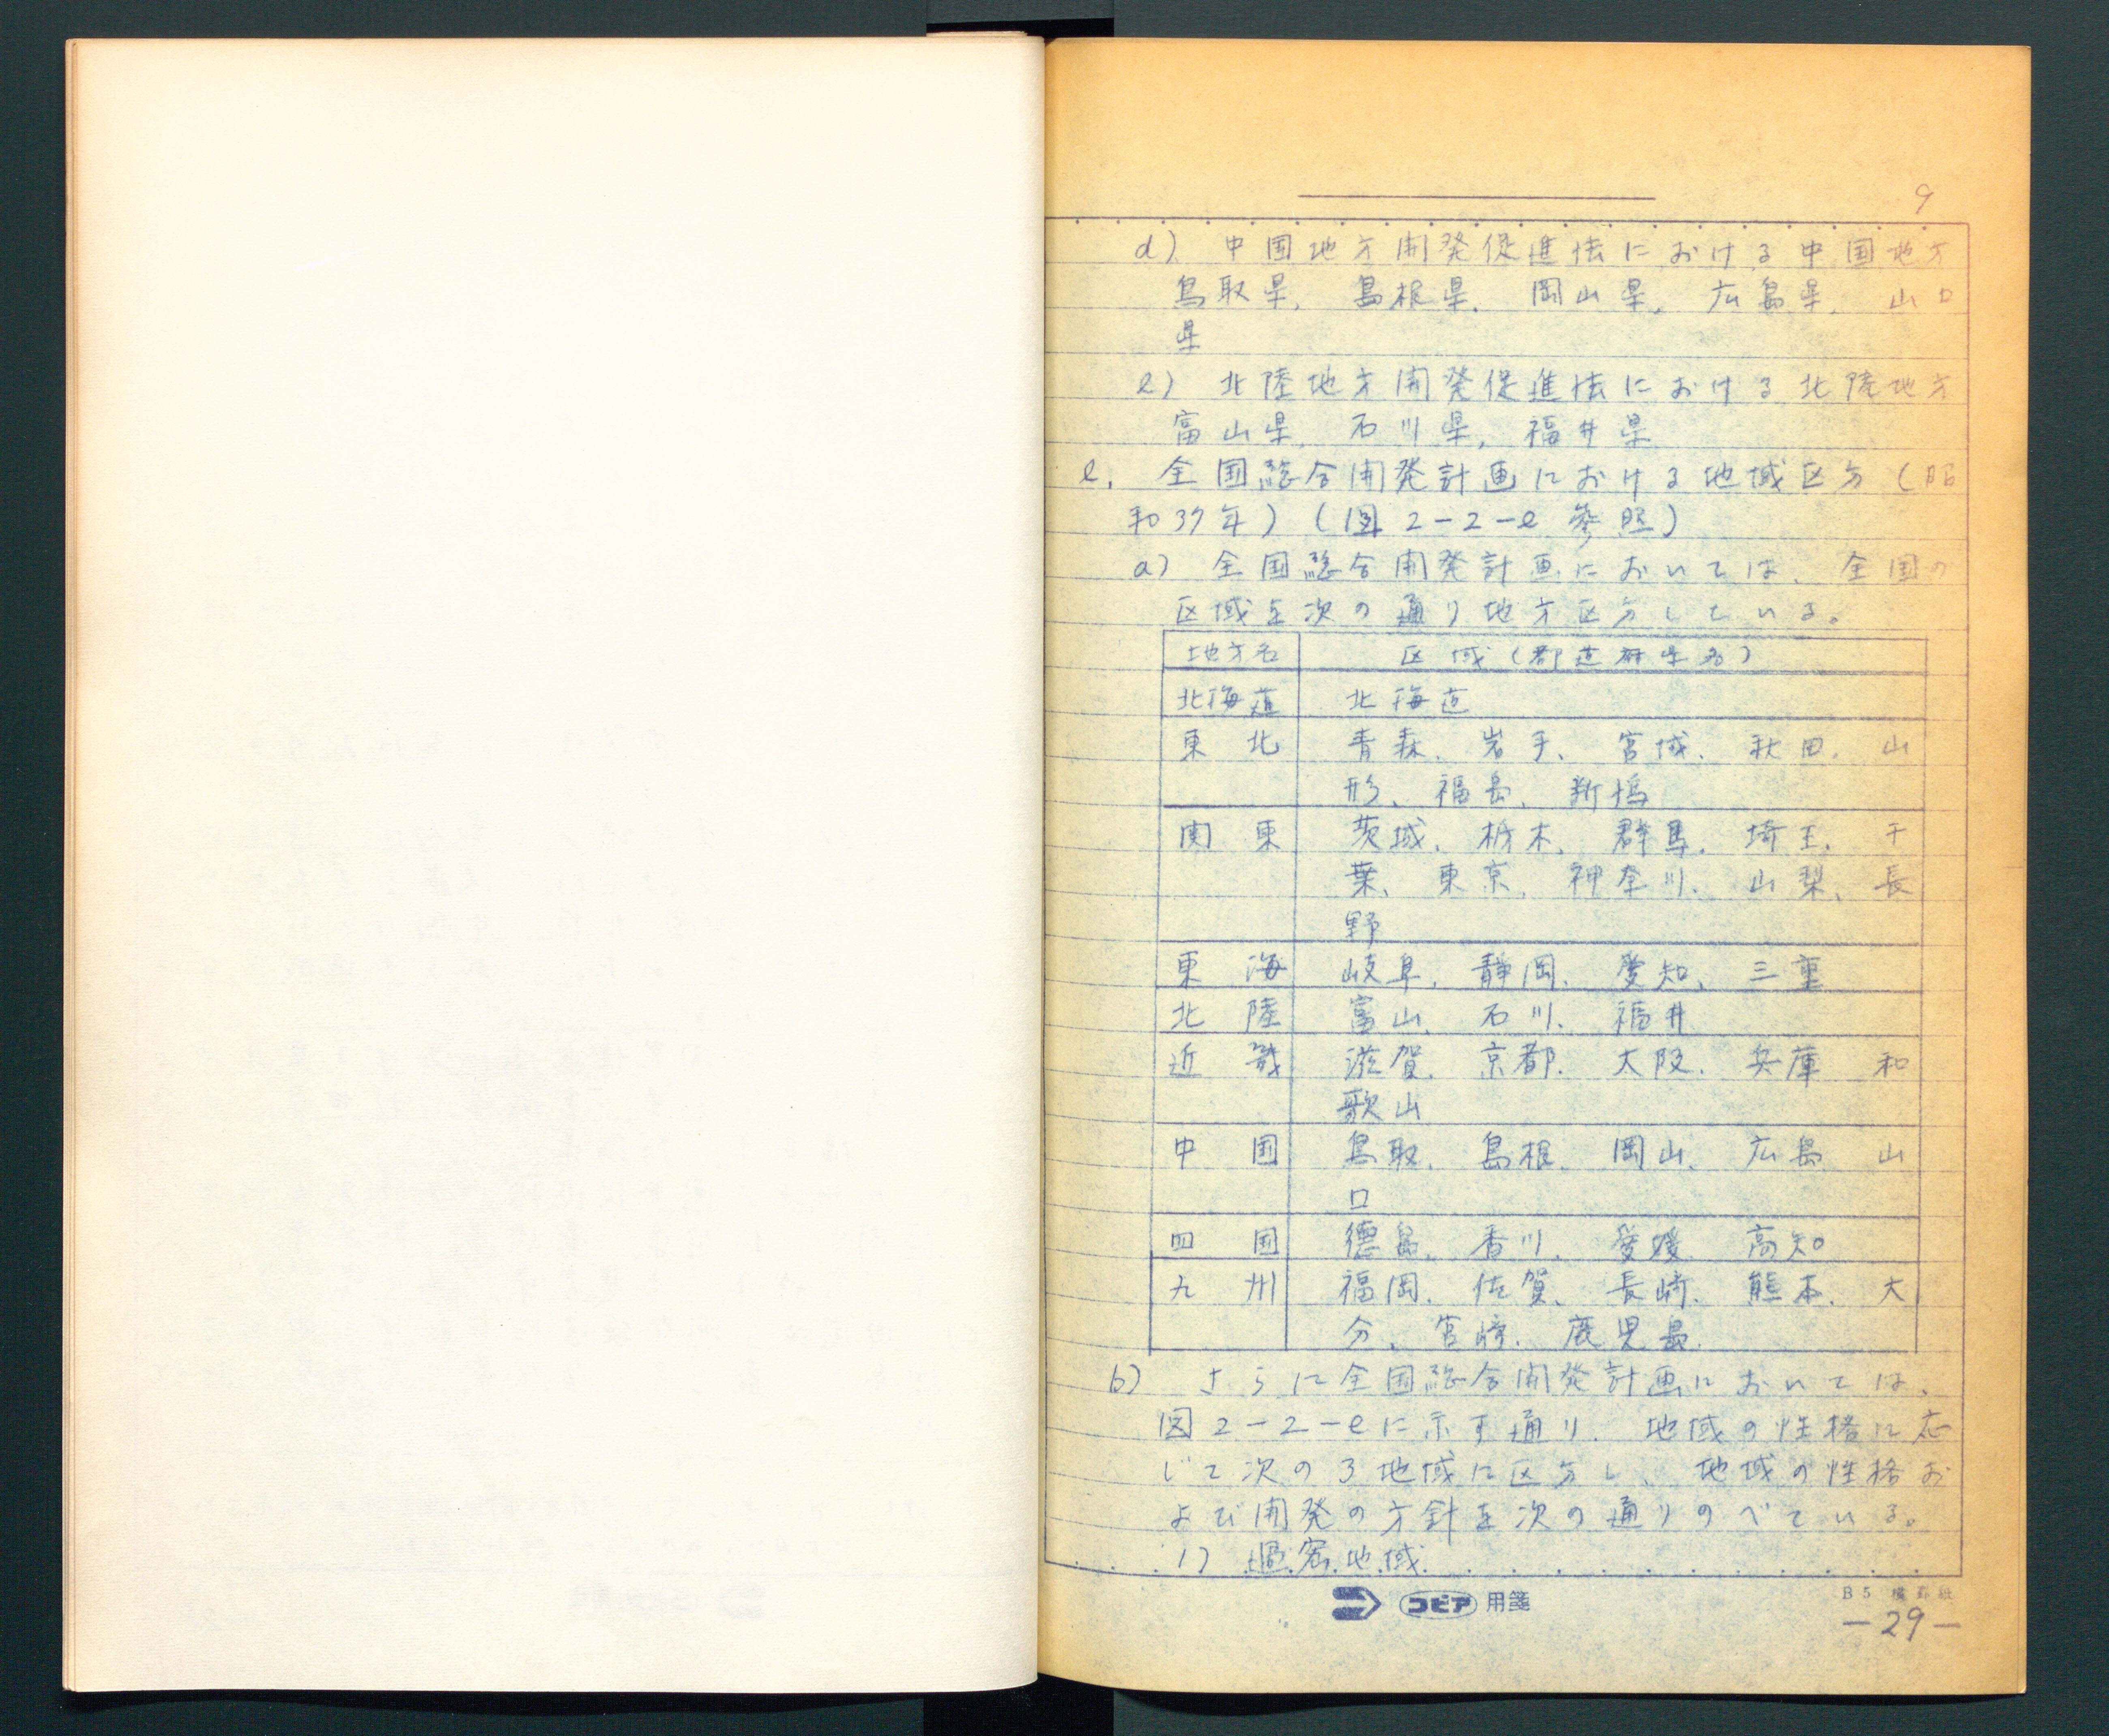 9
d) 中国地方開発促進法における中国地方
鳥取県, 島根県, 岡山県, 広島県, 山口
県
e) 北陸地方開発促進法における北陸地方
富山県, 石川県, 福井県
e. 全国総合開発計画における地域区分(昭
和37年)(図2-2-e 参照)
a) 全国総合開発計画においては、全国の
区域を次の通り地方区分している。
地方名 区域(都道府県名)
北海道 北海道
東 北 青森、岩手、宮城、秋田、山
形、福島、新潟
関 東 茨城、栃木、群馬、埼玉、千
葉、東京、神奈川、山梨、長
野
東 海 岐阜、静岡、愛知、三重
北 陸 富山、石川、福井
近 畿 滋賀、京都、大阪、兵庫 和
歌山
中 国 鳥取、島根、岡山、広島 山
口
四 国 徳島、香川、愛媛 高知
九 州 福岡、佐賀、長崎、熊本、大
分、宮崎、鹿児島、
b) さらに全国総合開発計画においては、
図2-2-eに示す通り、地域の性格に応
じて次の3地域に区分し、地域の性格お
よび開発の方針を次の通りのべている。
1) 過密地域
コピア 用箋
B5 横罫紙
-29-